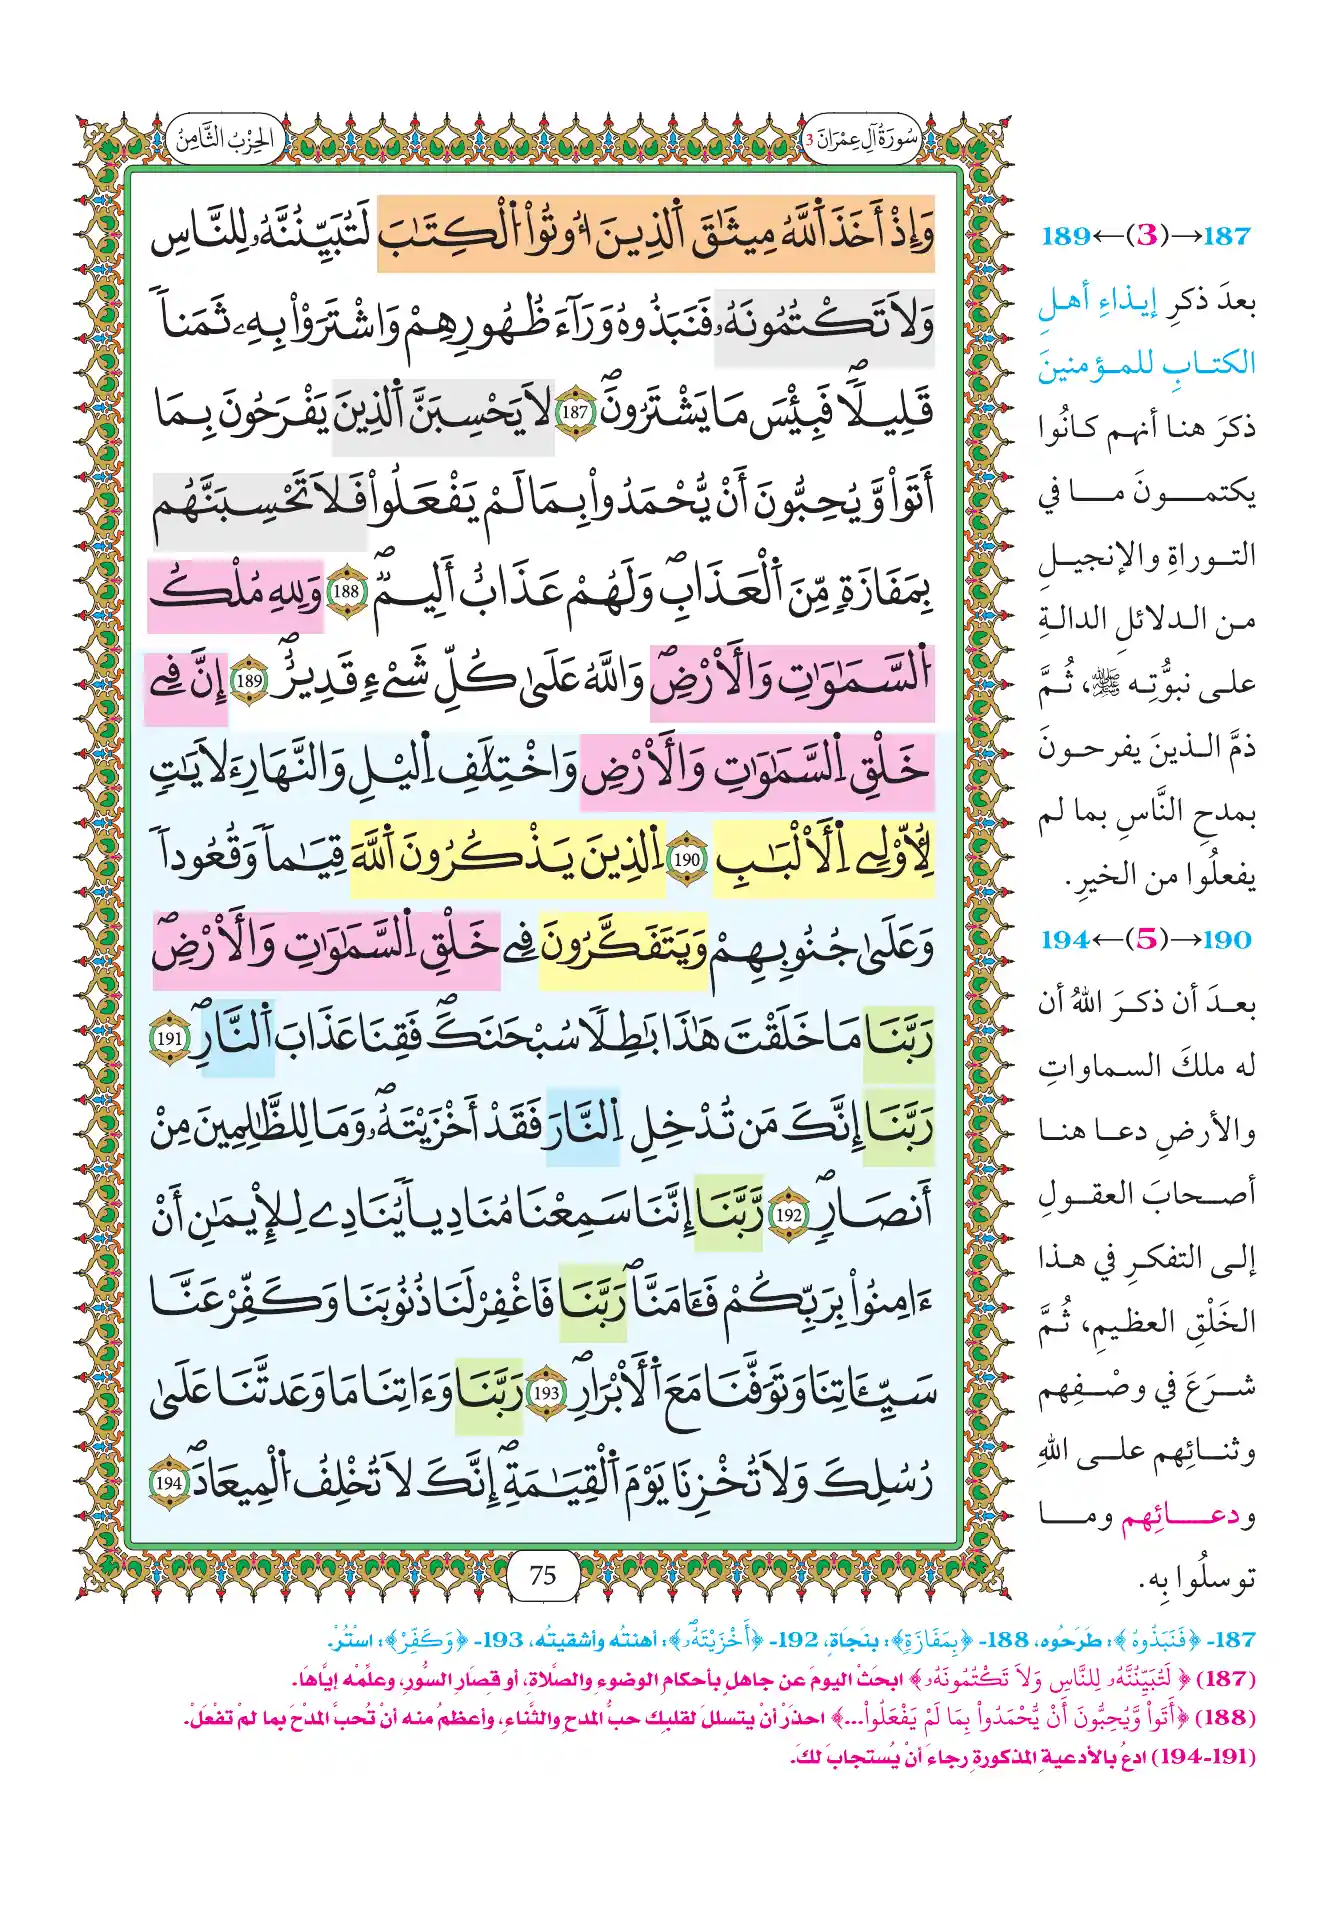 سُورَةُ آلِ عِمْرَانَ 3
الحِزْبُ الثَّامِنُ
وَإِذْ أَخَذَ اَللَّهُ مِيثَٰقَ اَلذِينَ أُوتُواْ اُلْكِتَٰبَ لَتُبَيِّنُنَّهُۥ لِلنَّاسِ
وَلَا تَكْتُمُونَهُۥ فَنَبَذُوهُ وَرَآءَ ظُهُورِهِمْ وَاشْتَرَوْاْ بِهِۦ ثَمَناٗ
قَلِيلٗاۖ فَبِئْسَ مَا يَشْتَرُونَۖ 187 لَا يَحْسِبَنَّ اَلذِينَ يَفْرَحُونَ بِمَا
أَتَواْ وَّيُحِبُّونَ أَنْ يُّحْمَدُواْ بِمَا لَمْ يَفْعَلُواْ فَلَا تَحْسِبَنَّهُم
بِمَفَازَةٖ مِّنَ اَلْعَذَابِۖ وَلَهُمْ عَذَابٌ أَلِيمٞۖ 188 وَلِلهِ مُلْكُ
اُلسَّمَٰوَٰتِ وَالْأَرْضِۖ وَاللَّهُ عَلَىٰ كُلِّ شَےْءٖ قَدِيرٌۖ 189 إِنَّ فِے
خَلْقِ اِلسَّمَٰوَٰتِ وَالْأَرْضِ وَاخْتِلَٰفِ اِليْلِ وَالنَّهَارِ ءَلَايَٰتٖ
لِّأُوْلِے اِلْأَلْبَٰبِ 190 اِلذِينَ يَذْكُرُونَ اَللَّهَ قِيَٰماٗ وَقُعُوداٗ
وَعَلَىٰ جُنُوبِهِمْ وَيَتَفَكَّرُونَ فِے خَلْقِ اِلسَّمَٰوَٰتِ وَالْأَرْضِۖ
رَبَّنَا مَا خَلَقْتَ هَٰذَا بَٰطِلٗا سُبْحَٰنَكَۖ فَقِنَا عَذَابَ اَلنَّارِۖ 191
رَبَّنَا إِنَّكَ مَن تُدْخِلِ اِلنَّارَ فَقَدْ أَخْزَيْتَهُۥۖ وَمَا لِلظَّٰلِمِينَ مِنْ
أَنصَارٖۖ 192 رَّبَّنَا إِنَّنَا سَمِعْنَا مُنَادِياٗ يُنَادِے لِلْإِيمَٰنِ أَنْ
ءَامِنُواْ بِرَبِّكُمْ فَـَٔامَنَّاۖ رَبَّنَا فَاغْفِرْ لَنَا ذُنُوبَنَا وَكَفِّرْ عَنَّا
سَيِّـَٔاتِنَا وَتَوَفَّنَا مَعَ اَلْأَبْرَارِۖ 193 رَبَّنَا وَءَاتِنَا مَا وَعَدتَّنَا عَلَىٰ
رُسُلِكَ وَلَا تُخْزِنَا يَوْمَ اَلْقِيَٰمَةِۖ إِنَّكَ لَا تُخْلِفُ اُلْمِيعَادَۖ 194
75
187→(3)←189
بعدَ ذكرِ إيذاءِ أهلِ
الكتابِ للمؤمنينَ
ذكرَ هنا أنهم كانُوا
يكتمونَ ما في
التوراةِ والإنجيلِ
من الدلائلِ الدالةِ
على نبوُّتِه ﷺ، ثُمَّ
ذمَّ الذينَ يفرحونَ
بمدحِ النَّاسِ بما لم
يفعلُوا من الخيرِ.
190→(5)←194
بعدَ أن ذكرَ اللهُ أن
له ملكَ السماواتِ
والأرضِ دعا هنا
أصحابَ العقولِ
إلى التفكرِ في هذا
الخَلْقِ العظيمِ، ثُمَّ
شرعَ في وصْفِهم
وثنائِهم على اللهِ
ودعائِهم وما
توسلُوا بِه.
187- ﴿فَنَبَذُوهُ﴾: طَرَحُوه، 188- ﴿بِمَفَازَةٖ﴾: بنَجَاةٍ، 192- ﴿أَخْزَيْتَهُۥۖ﴾: أهنتُه وأشقيتُه، 193- ﴿وَكَفِّرْ﴾: اسْتُرْ.
(187) ﴿لَتُبَيِّنُنَّهُۥ لِلنَّاسِ وَلَا تَكْتُمُونَهُۥ﴾ ابحَثْ اليومَ عن جاهلٍ بأحكامِ الوضوءِ والصَّلاةِ، أو قصَارِ السُّورِ، وعلِّمْه إيَّاهَا.
(188) ﴿أَتَواْ وَّيُحِبُّونَ أَنْ يُّحْمَدُواْ بِمَا لَمْ يَفْعَلُواْ...﴾ احذرْ أنْ يتسللَ لقلبِك حبُّ المدحِ والثَّناءِ، وأعظمُ منه أنْ تُحبَّ المدْحَ بما لم تفعَلْ.
(191-194) ادعُ بالأدعيةِ المذكورةِ رجاءَ أنْ يُستجابَ لكَ.